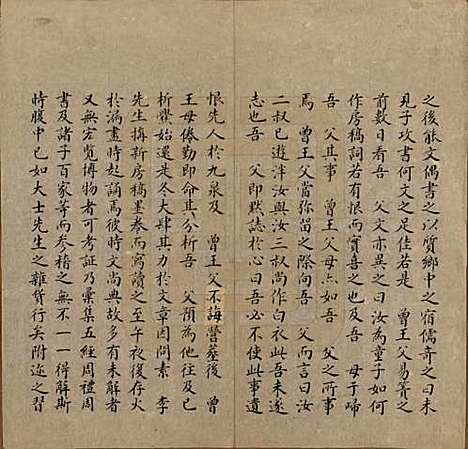 之後能文偶書之以質鄉中之宿儒奇之曰未
見子攻書何文之足佳若是　曾王父易簀之
前數日看吾　父文亦異之曰汝為童子如何
作房稿詞若有恨而實喜之也及吾　母于歸
吾　父其事　曾王父母亦如吾　父之所事
焉　曾王父當弥留之際向吾　父而言曰汝
二叔已遊泮汝與汝三叔尚作白衣此吾未遂
志也吾　父即默誌於心曰吾必不使此事遺
恨先人於九泉及　曾王父不諱營葬後　曾
王母倦勤即命其分析吾　父為他往及已
析爨始還是冬大肆其力於文章因問素　李
先生揹新房稿墨卷而寓讀之至午夜復存火
於漏盡時起誦焉彼時文尚典故多有未解者
又無宏覽博物者可考証乃彙集五經周禮周
書及諸子百家等而參稽之無不一一得解斯
時腹中已如大士先生之雜貨行矣附近之習